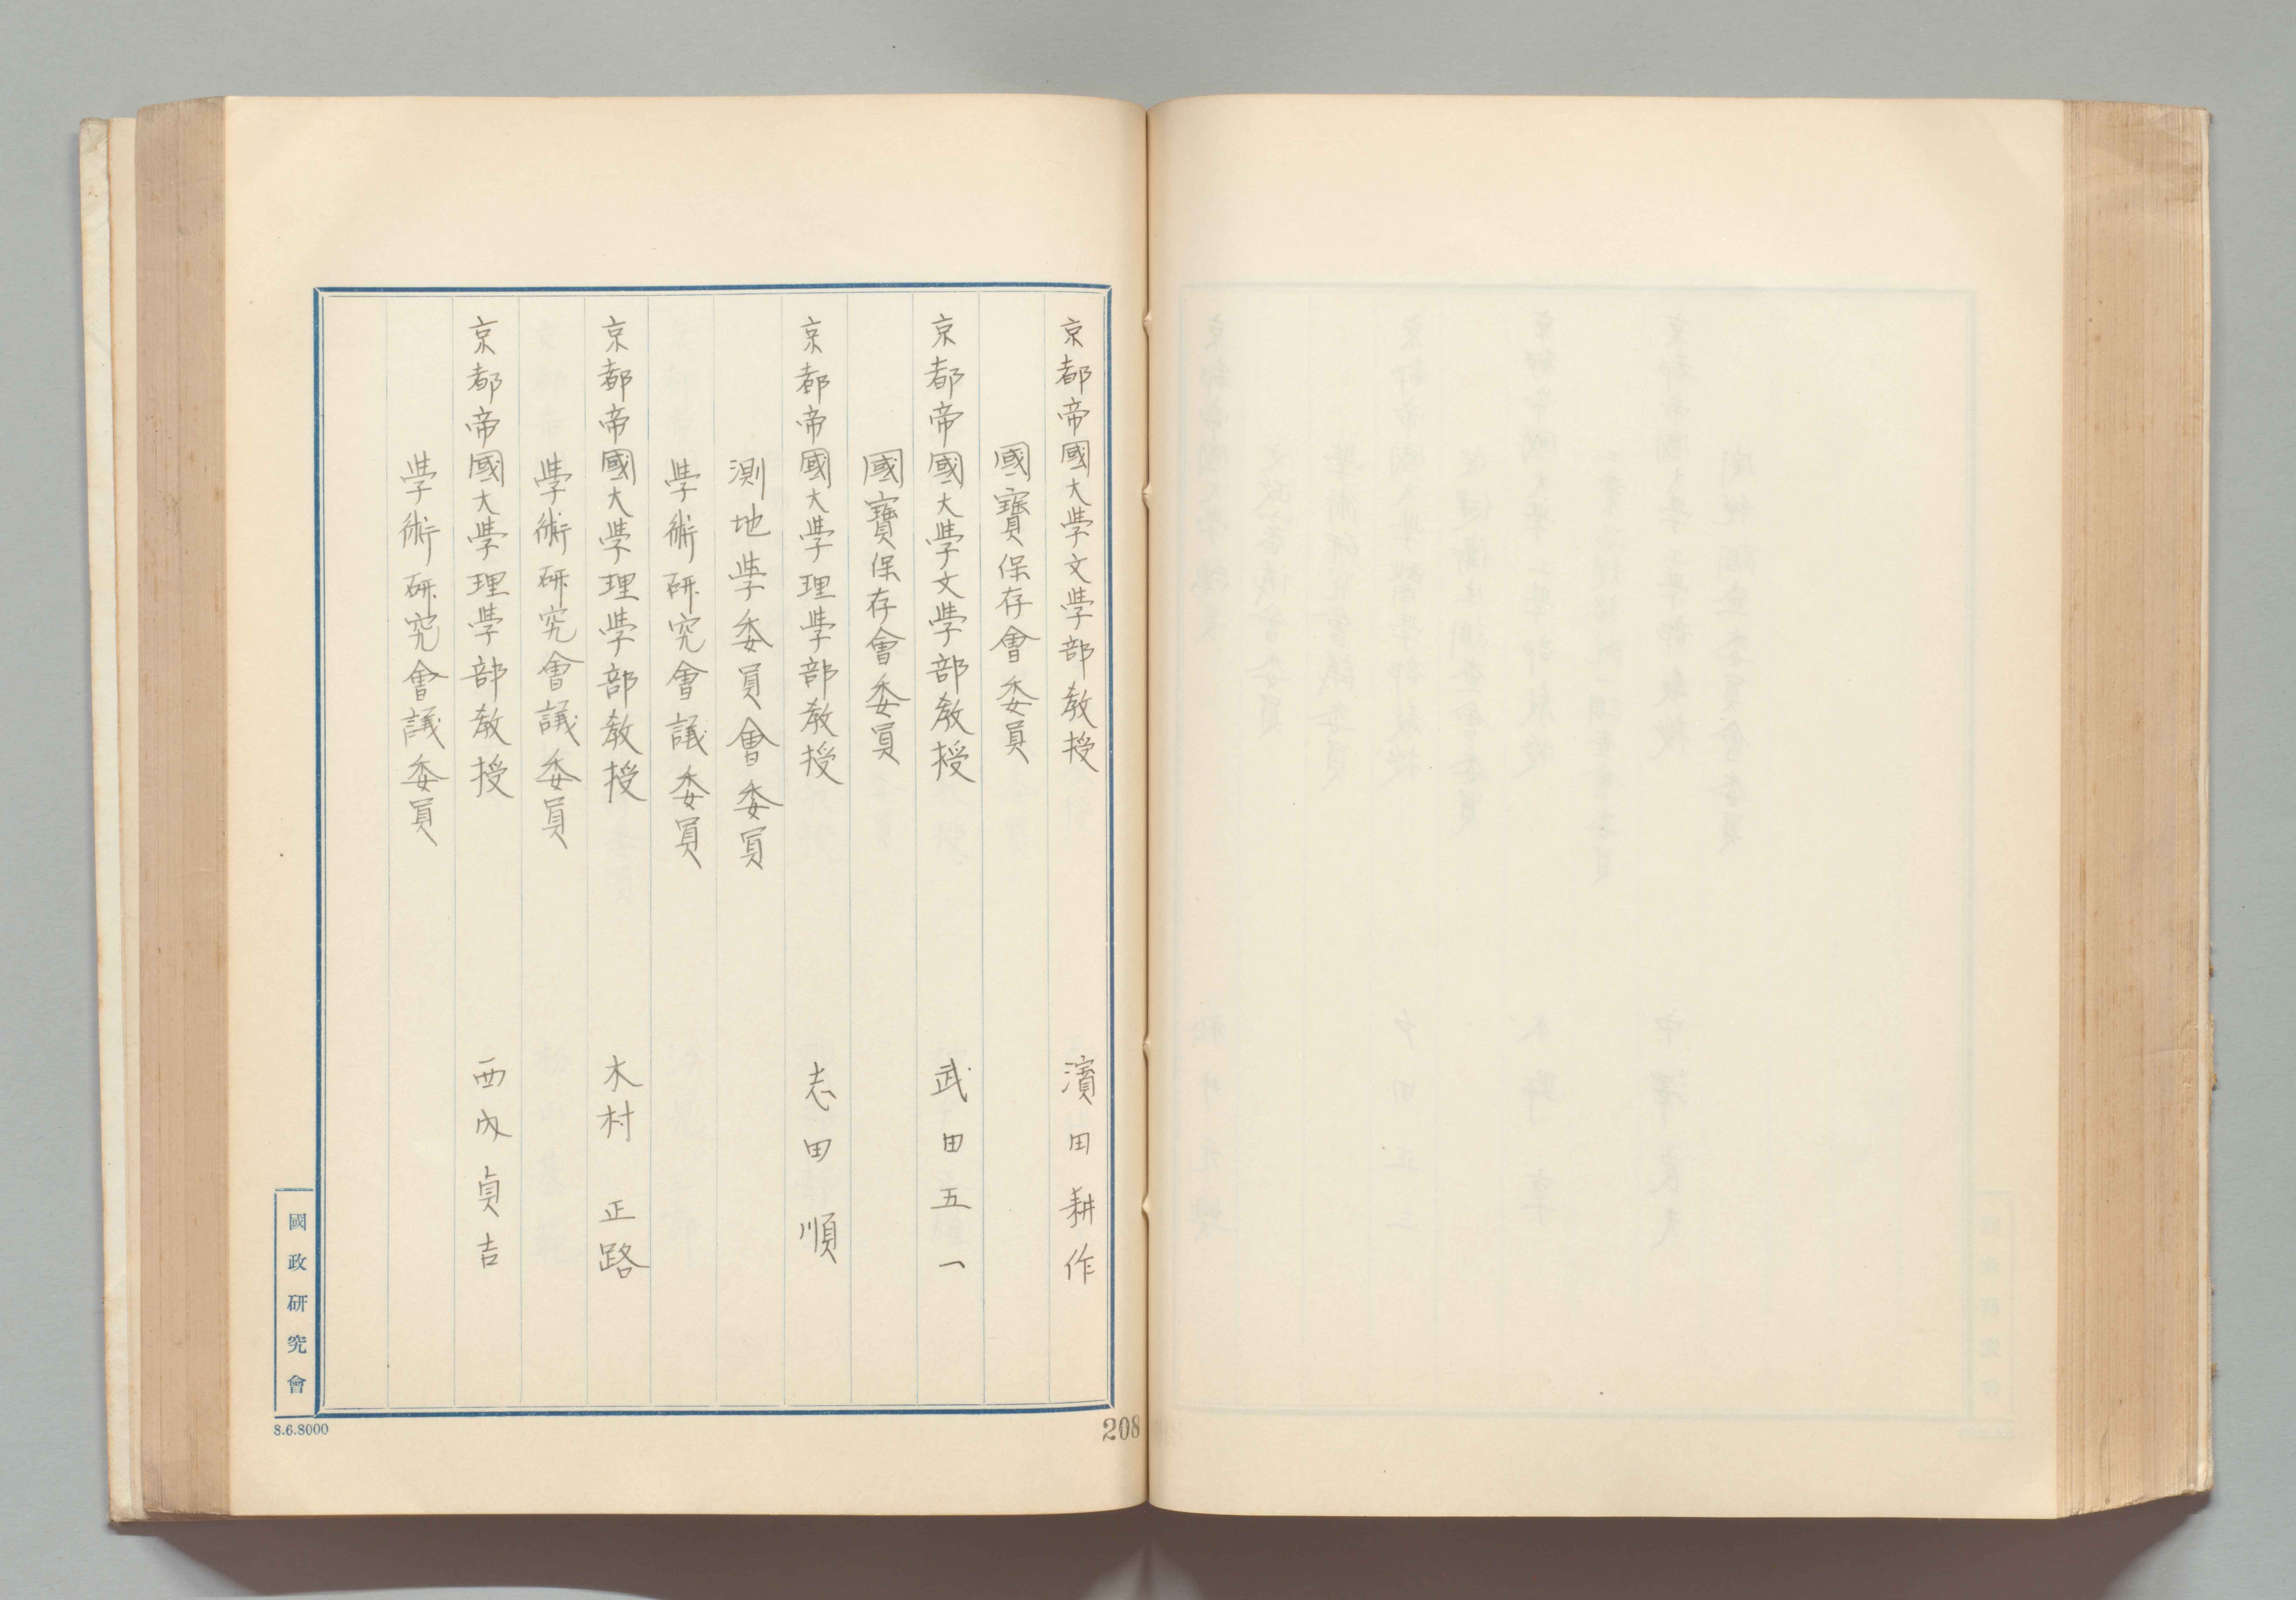 京都帝國大學文學部教授　濱田耕作
國寶保存會委員
京都帝國大學文學部教授　武田五一
國寶保存會委員
京都帝國大學理學部教授　志田順
測地學委員會委員
學術研究會議委員
京都帝國大學理學部教授　木村正路
學術研究會議委員
京都帝國大學理學部教授　西內貞吉
學術研究會議委員
國政研究會
8.6.8000
208